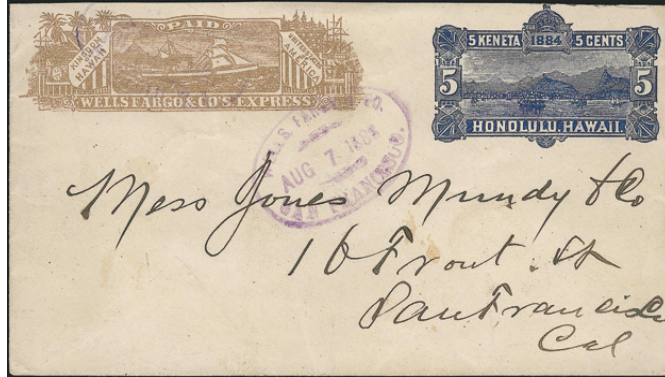 PAID
KINGDOM HAWAII
UNITED STATES AMERICA
WELLS FARGO & CO'S. EXPRESS
5 KENETA 1884 5 CENTS
5 5
HONOLULU, HAWAII.
WELLS FARGO CO.
AUG 7 1884
SAN FRANCISCO.
Mess Jones Mundy & Co
16 Front St
San Francisco
Cal